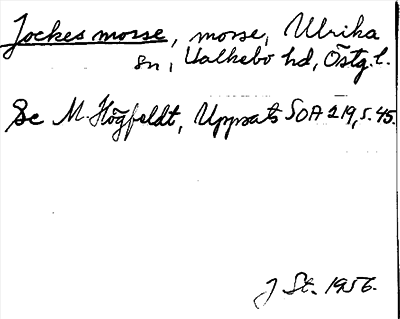 Jockes mosse, mosse, Ulrika
sn, Valkebo hd, Östg. l.
Se M. Högfeldt, Uppsats SOA 219, s. 45.
J St. 1956.